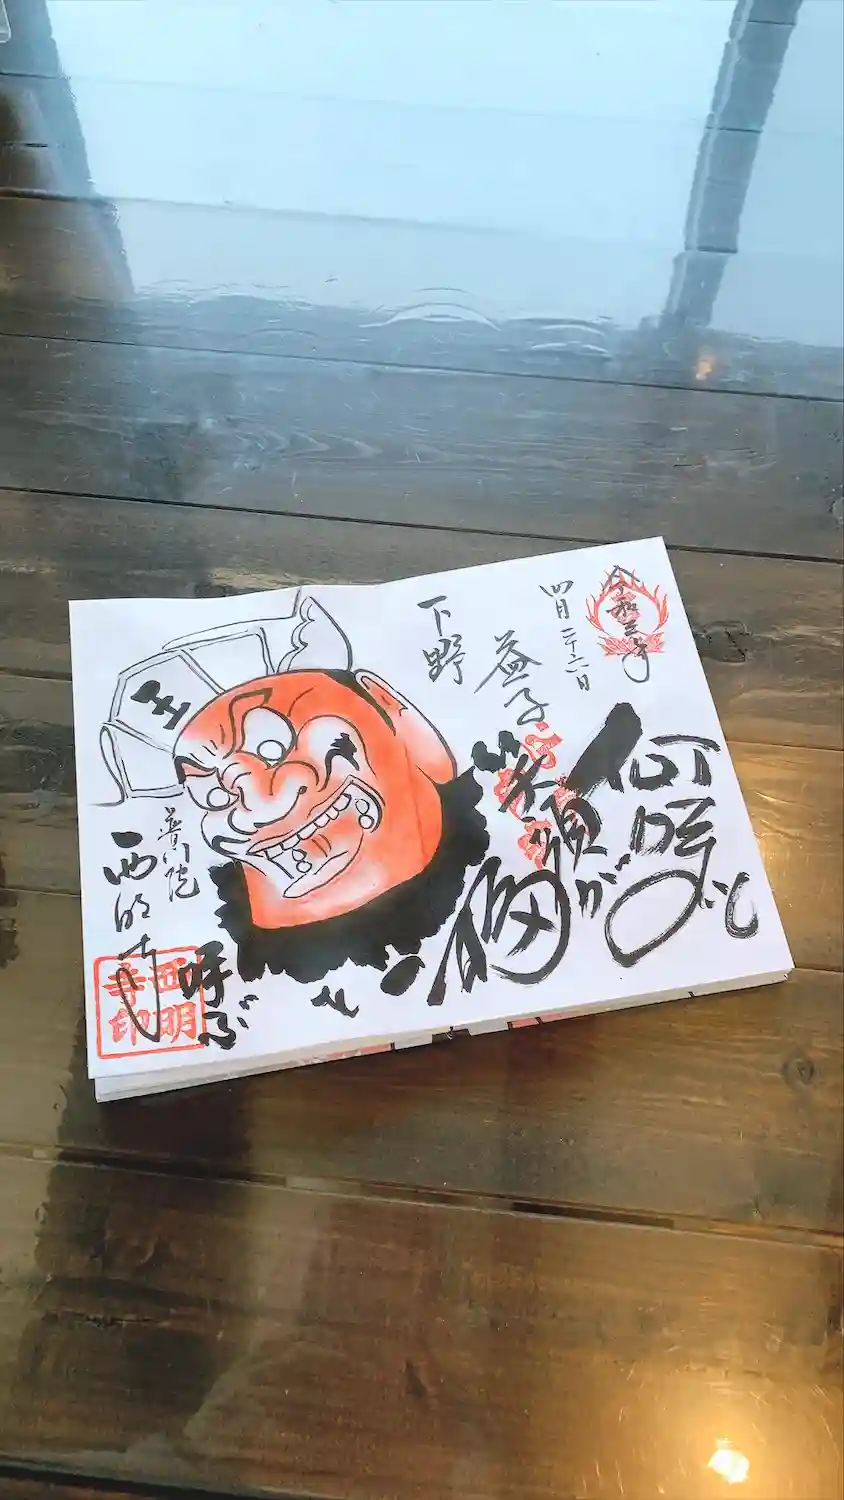 令和三年
四月二十六日
下野
益子
何時も
笑顔が
福を
呼ぶ
王
普門院
西明寺
西明寺印